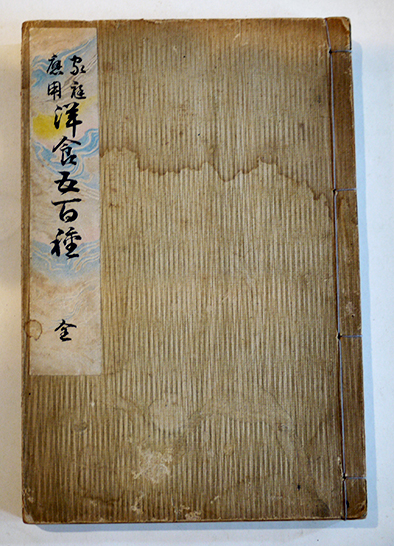 家庭
應用
洋食五百種
全